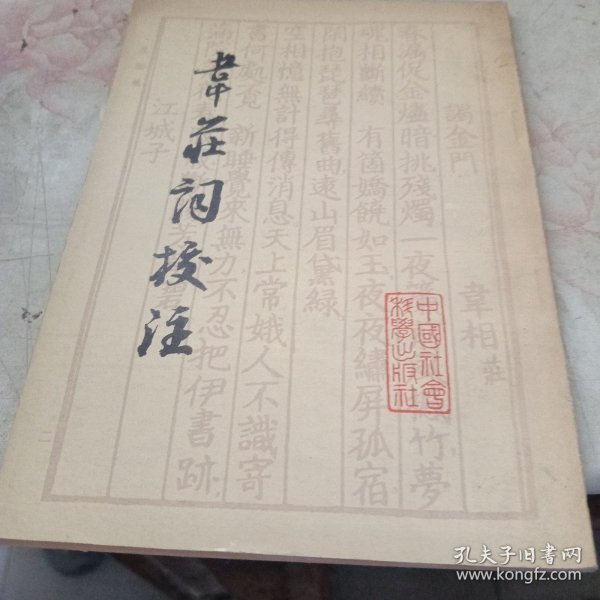 韋莊詞校注
中國社會
科學出版社
謁金門
韋相莊
春漏促金爐暗挑殘燭一夜
竹夢
魂相斷續 有個嬌饒如玉夜夜繡屏孤宿
閑抱琵琶尋舊曲遠山眉黛綠
空相憶無計得傳消息天上常娥人不識寄
書何處覓 新睡覺來無力不忍把伊書跡
江城子
孔夫子旧书网
www.kongfz.com